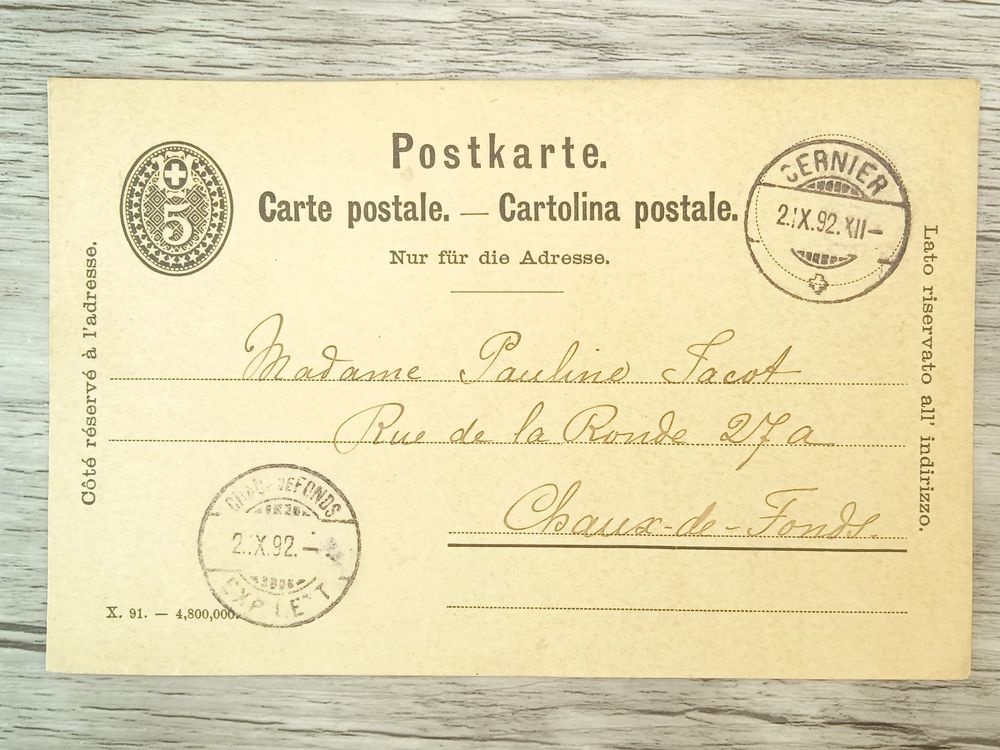 Postkarte.
Carte postale. — Cartolina postale.
Nur für die Adresse.
5
CERNIER
2.IX.92.XII—
Côté réservé à l'adresse.
Lato riservato all' indirizzo.
Madame Pauline Jacot
Rue de la Ronde 27a
Chaux-de-Fonds.
CHAUX-DEFONDS
2.IX.92.—
EXP. LETT
X. 91. — 4,800,000.